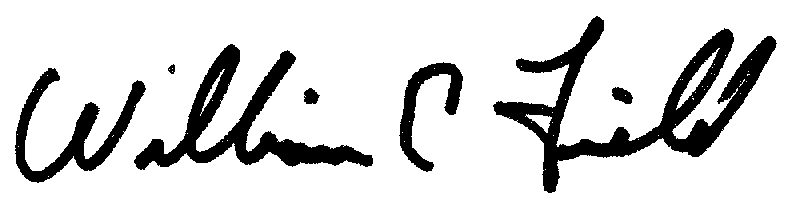 William C Field